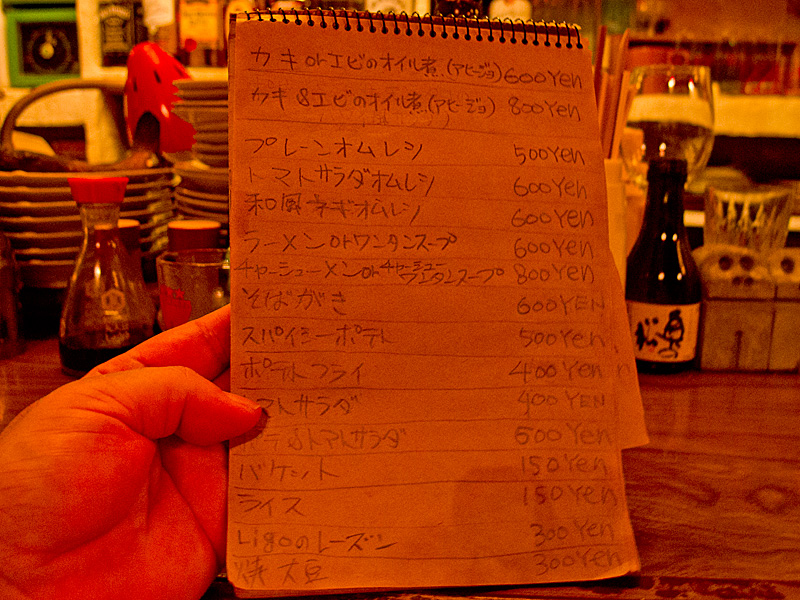 カキ or エビのオイル煮(アヒージョ) 600 Yen
カキ & エビのオイル煮(アヒージョ) 800 Yen
プレーンオムレツ 500 Yen
トマトサラダオムレツ 600 Yen
和風ネギオムレツ 600 Yen
ラーメン or ワンタンスープ 600 Yen
チャーシューメン or チャーシューワンタンスープ 800 Yen
そばがき 600 YEN
スパイシーポテト 500 Yen
ポテトフライ 400 Yen
マトサラダ 400 YEN
&トマトサラダ 500 Yen
バケット 150 Yen
ライス 150 Yen
Ligoのレーズン 300 Yen
焼大豆 300 Yen